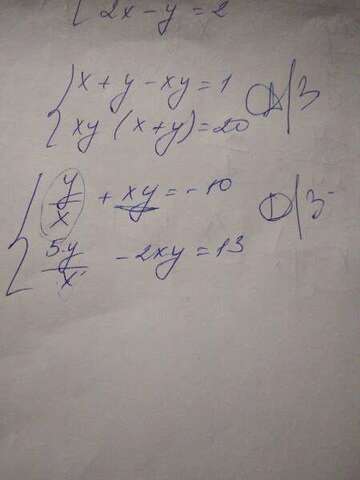 2x - y = 2
x + y - xy = 1 Д/З
xy (x + y) = 20
y/x + xy = -10 Д/З
5y/x - 2xy = 13